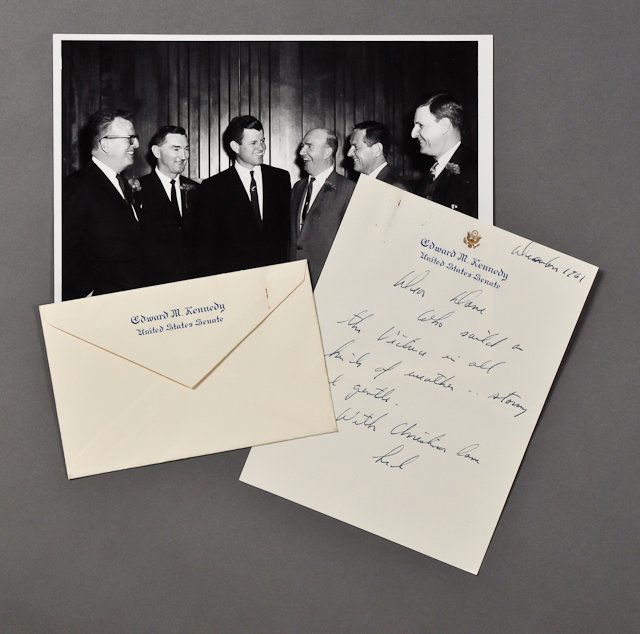 Edward M. Kennedy
United States Senate
Edward M. Kennedy
United States Senate
December 1961
Dear Dave
Who sailed on
the Victura in all
kinds of weather .. stormy
& gentle.
With Christian love
Ted